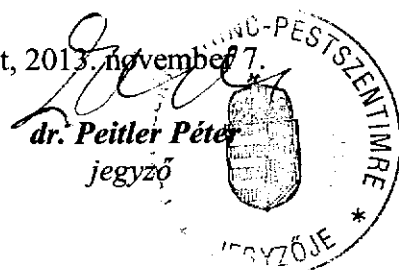 t, 2013. november 7.
dr. Peitler Péter
jegyző
-PESTSZENTIMRE *
JEGYZŐJE